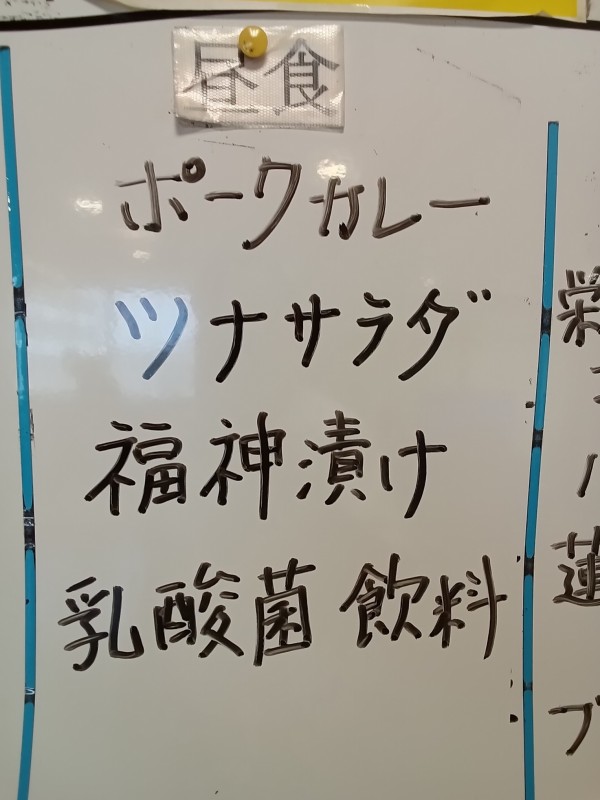 昼食
ポークカレー
ツナサラダ
福神漬け
乳酸菌 飲料